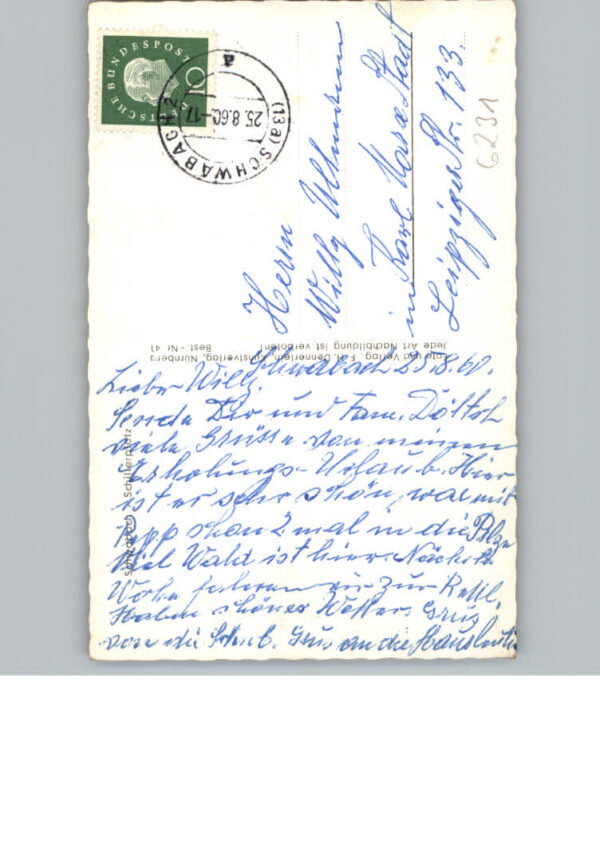 DEUTSCHE BUNDESPOST
10
(13a) SCHWABACH 2
25.8.60.-17
a
Herrn
Willy
in Karl Marx Stadt
Leipziger Str. 133.
6231
Foto und Verlag, F. H. Dennerlein, Kunstverlag, Nürnberg
Jede Art Nachbildung ist verboten! Best.-Nr. 41
Schwabach, Schillerplatz
Schwabach 25.8.60.
Lieber Willy.
Sende Dir und Fam.
viele Grüsse von meinem
Erholungs-Urlaub. Hier
ist es sehr schön, war mit
Sepp schon 2 mal in die Pilze
Viel Wald ist hier. Nächste
Woche fahren wir zur
Haben schönes Wetter. Grus
von die Grus an die Hausleute